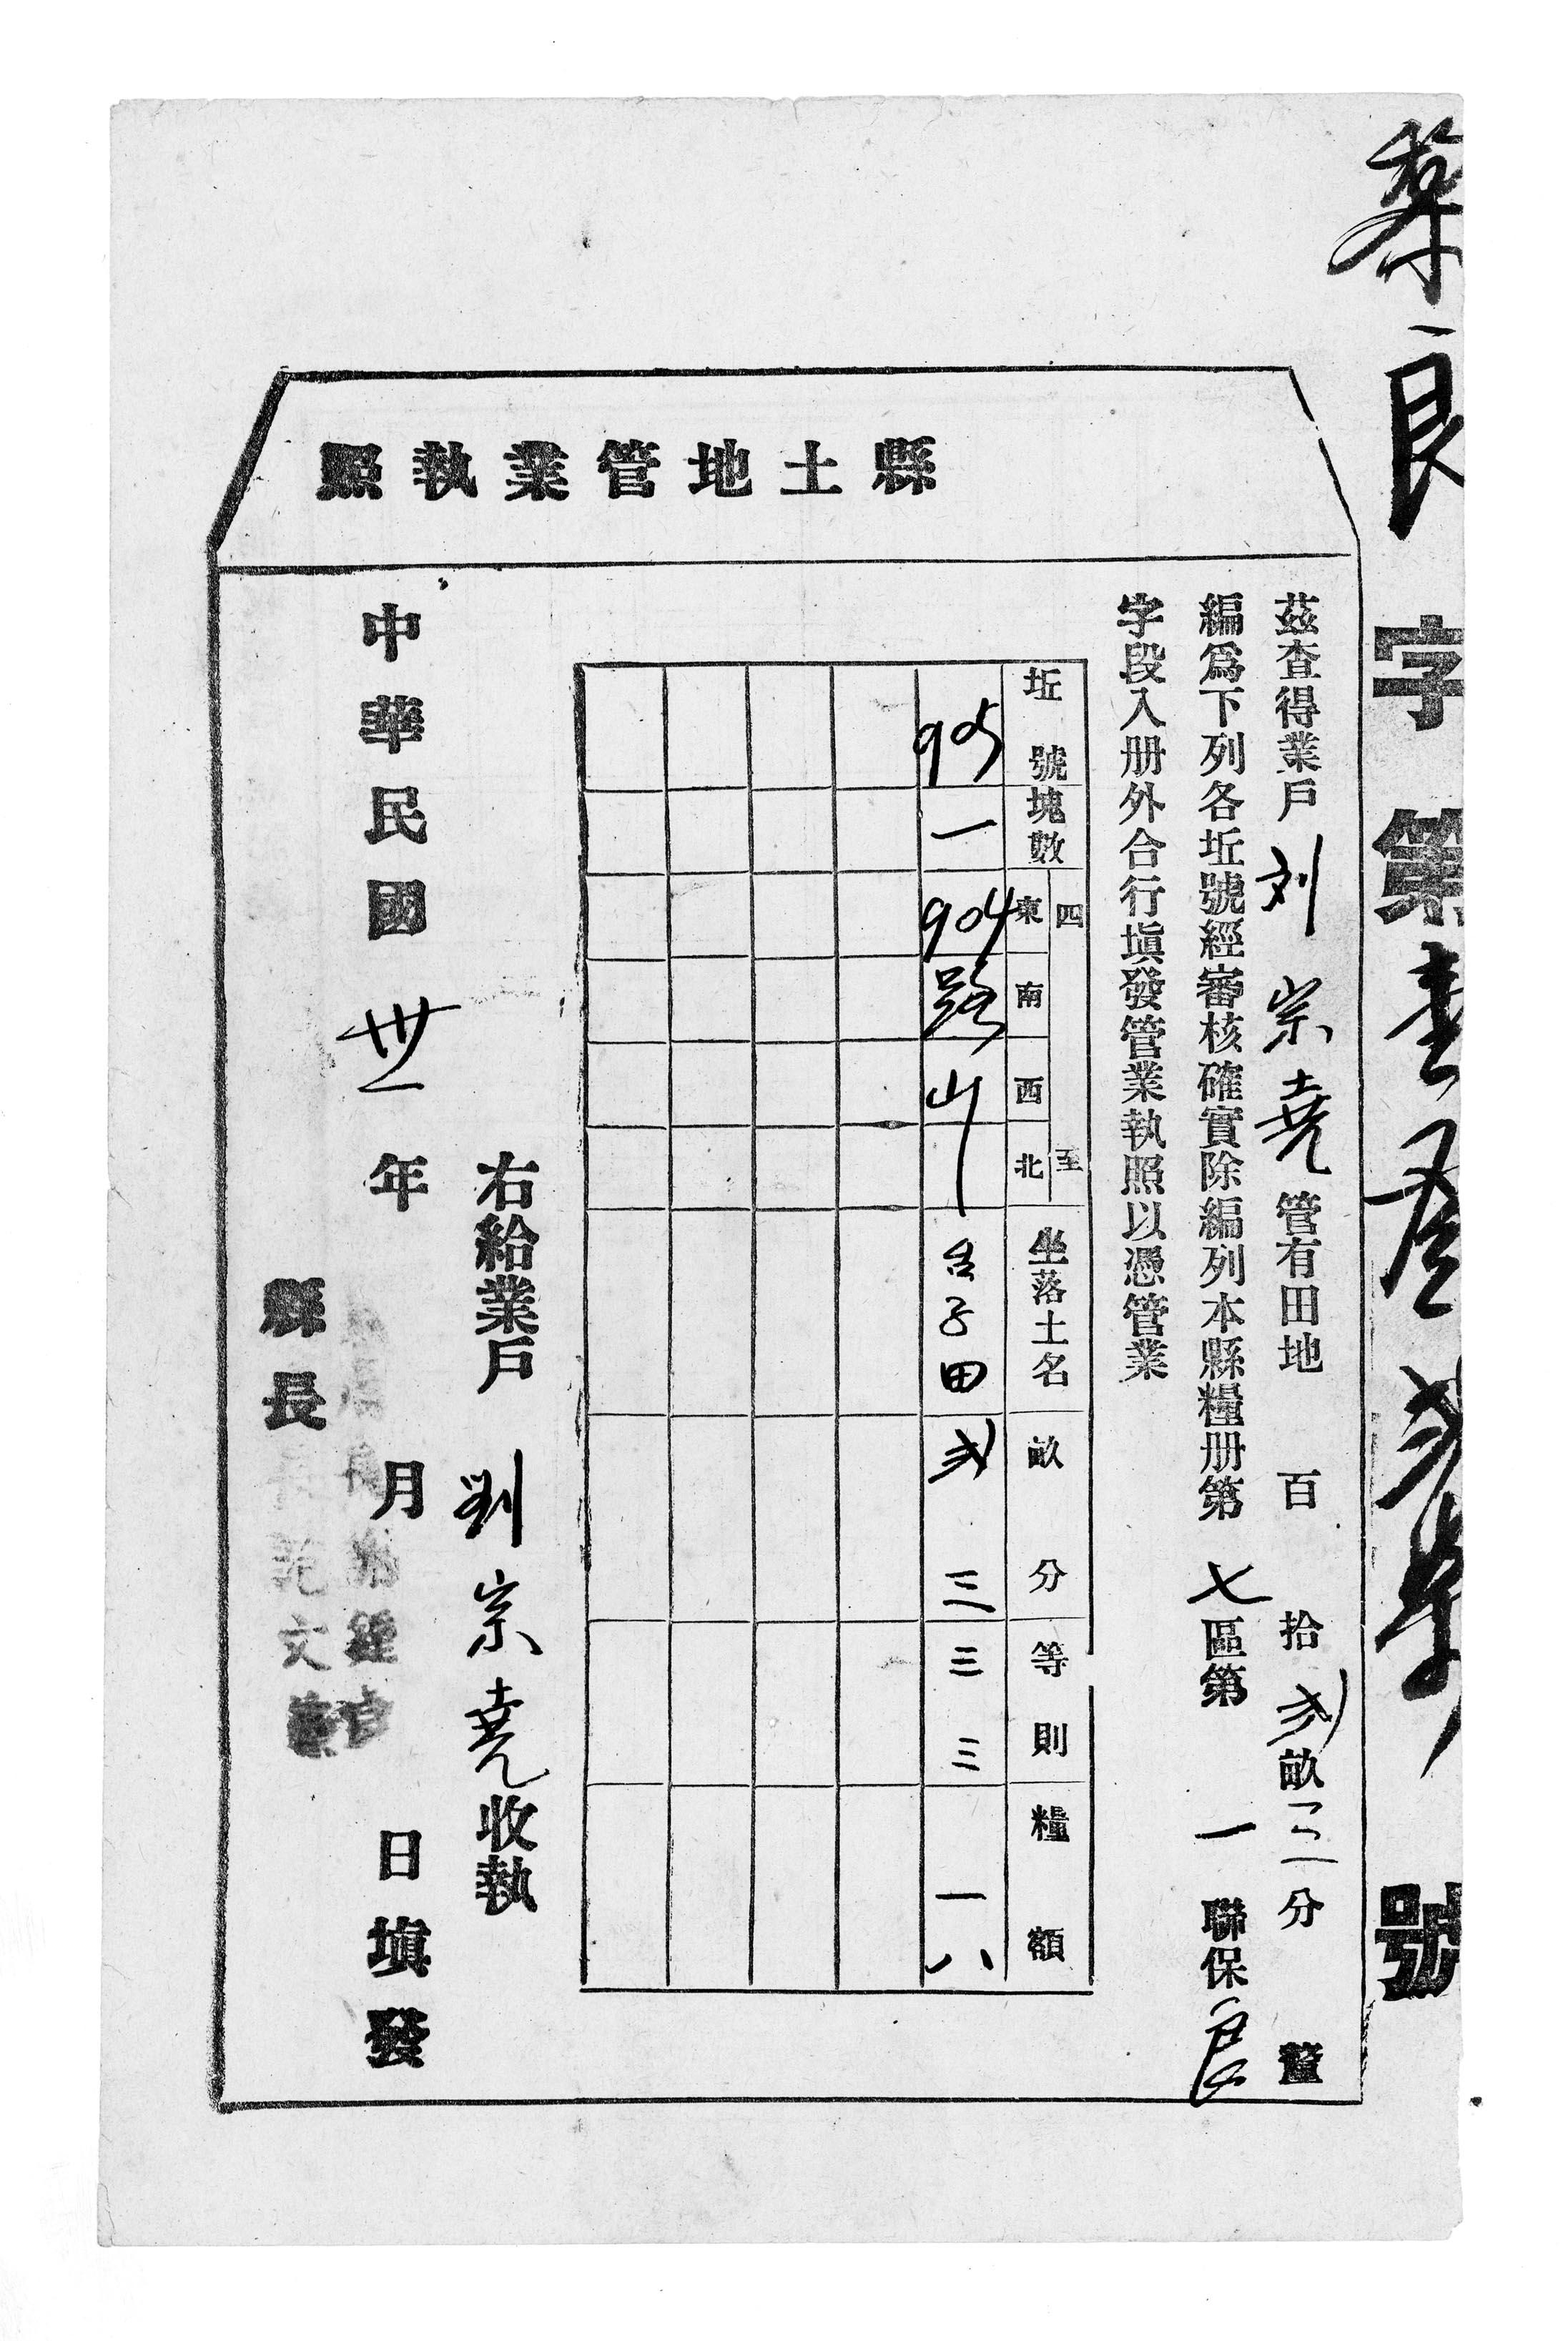 良字第壹 號
縣土地管業執照
茲查得業戶刘宗堯管有田地 百 拾弐畝三分 釐
編爲下列各坵號經審核確實除編列本縣糧册第七區第一聯保良
字段入册外合行塡發管業執照以憑管業
坵號 塊數 四至 東 南 西 北 坐落土名 畝 分 等則 糧額
905 一 904 路 山 子田 弐 三 三 三 一八
右給業戶 劉宗堯 收執
中華民國卅一年 月 日塡發
縣長